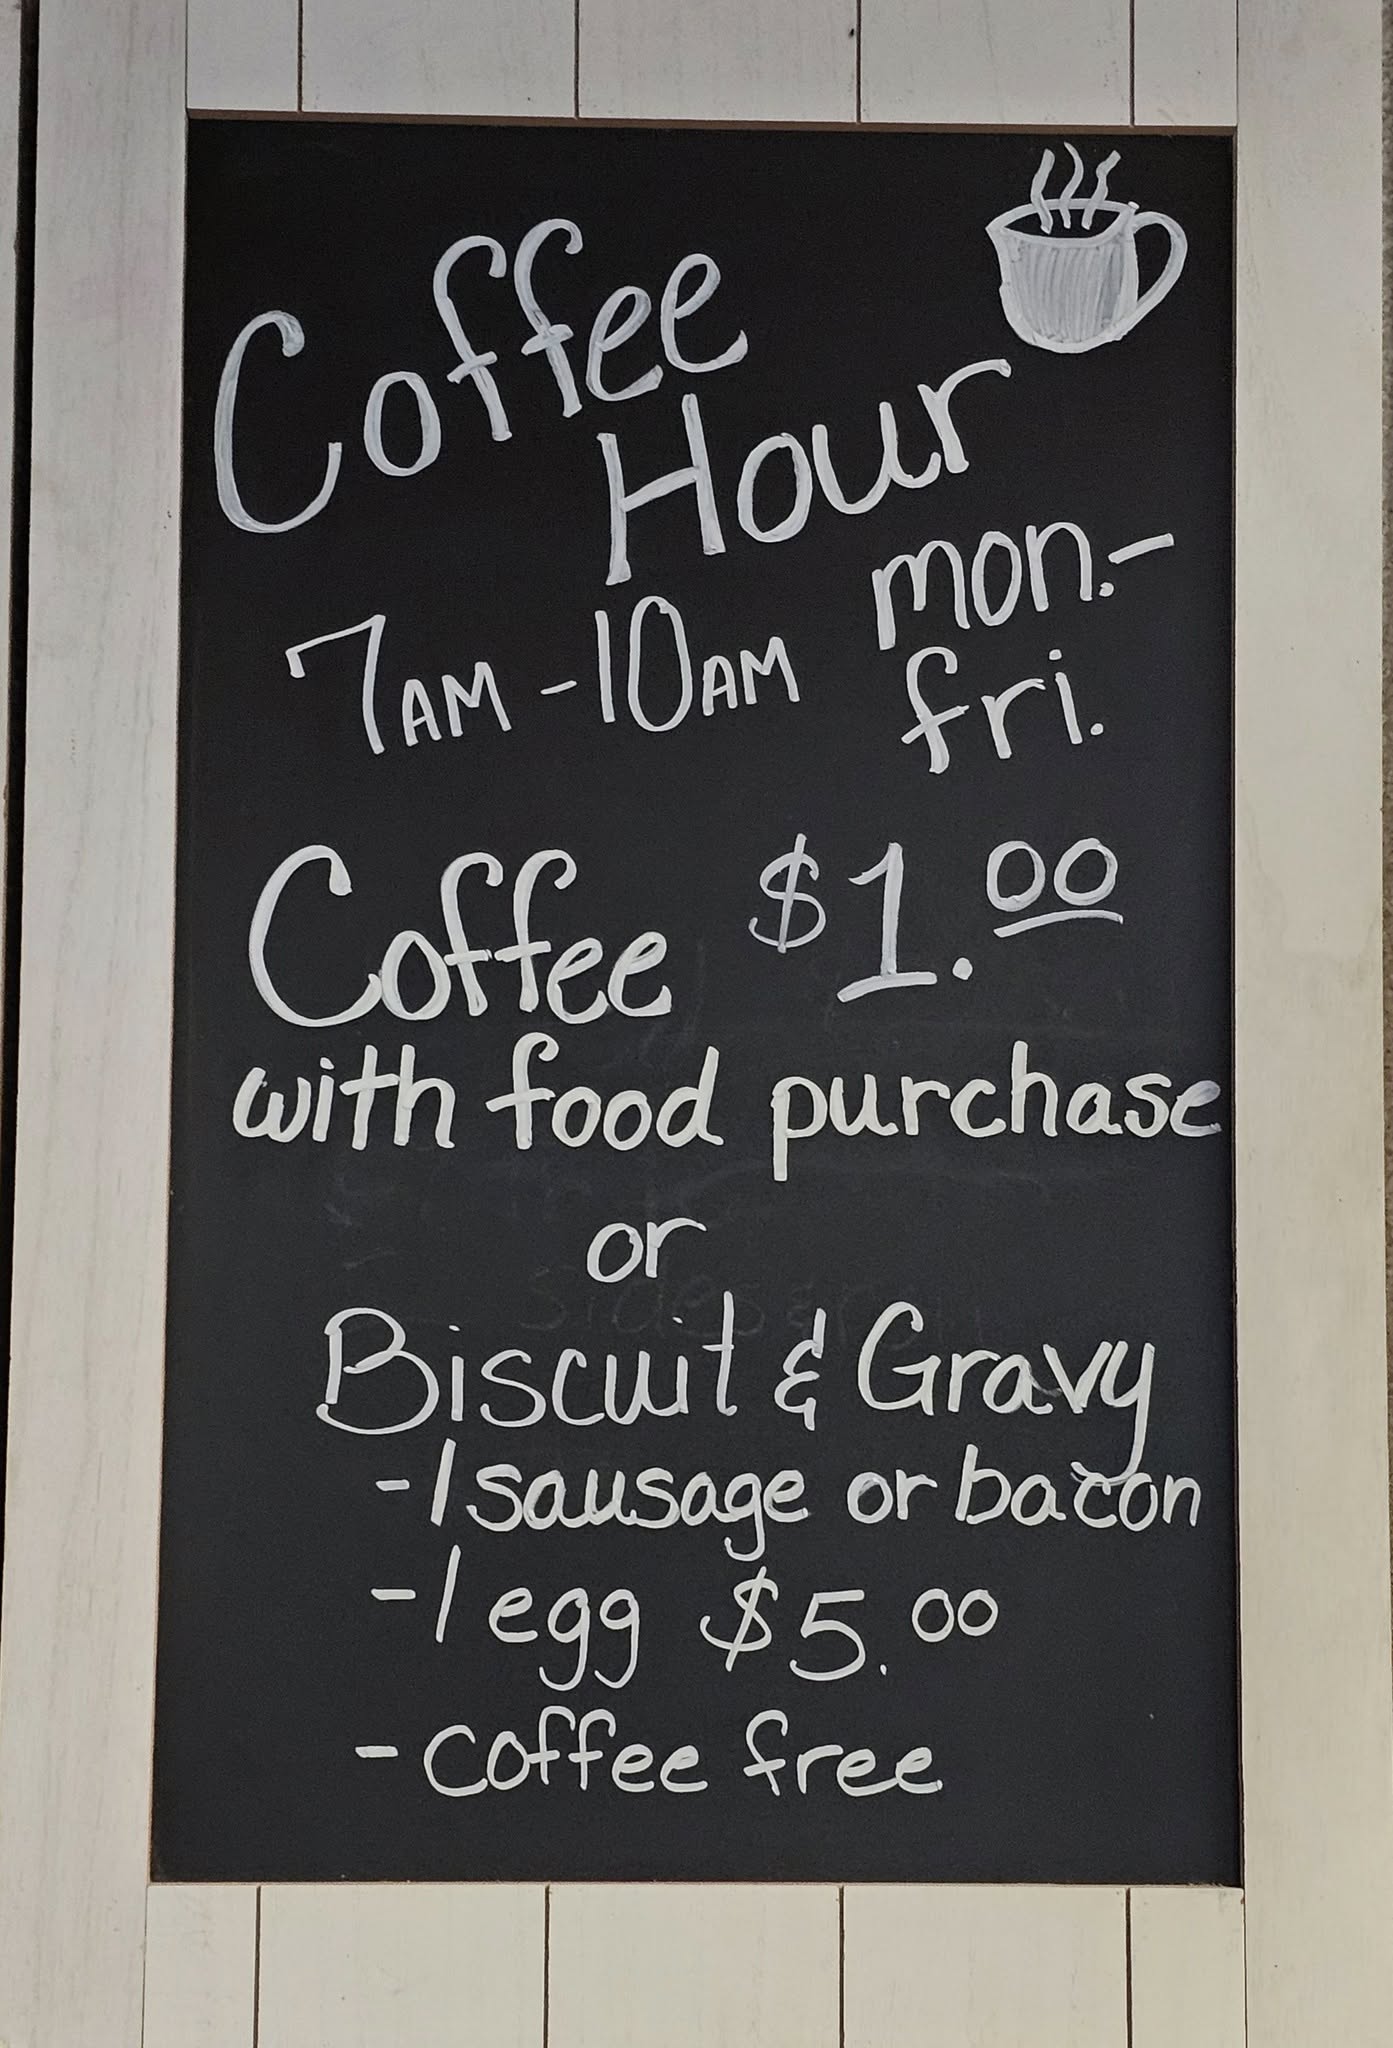 Coffee
Hour
7AM - 10AM mon.-
fri.
Coffee $1.00
with food purchase
or
Biscuit & Gravy
- 1 sausage or bacon
- 1 egg $5.00
- coffee free